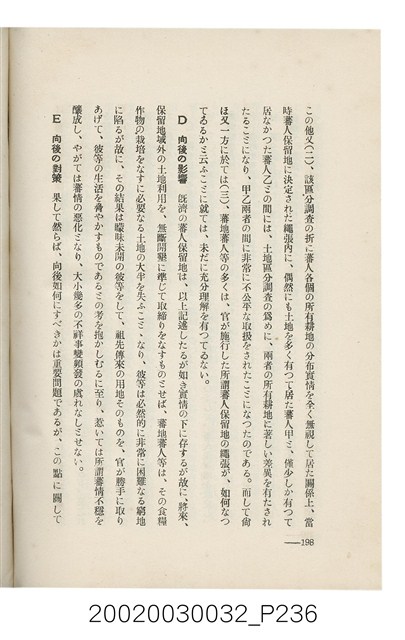 この他又(二)、該區分調査の折に蕃人各個の所有耕地の分布實情を全く無視して居た關係上、當
時蕃人保留地に決定された繩張內に、偶然にも土地を多く有つて居た蕃人甲と、僅少しか有つて
居なかつた蕃人乙との間には、土地區分調査の爲めに、兩者の所有耕地に著しい差異を有たされ
たることになり、甲乙兩者の間に非常に不公平な取扱をされたことになつたのである。而して尙
ほ又一方に於ては(三)、蕃地蕃人等の多くは、官が施行した所謂蕃人保留地の繩張が、如何なつ
てゐるかと云ふことに就ては、未だに充分理解を有つてゐない。
D 向後の影響 旣濟の蕃人保留地は、以上記述したるが如き實情の下に存するが故に、將來、
保留地域外の土地利用を、無斷開墾に準じて取締りをなすものとせば、蕃地蕃人等は、その食糧
作物の栽培をなすに必要なる土地の大半を失ふこととなり、彼等は必然的に非常に困難なる窮地
に陷るが故に、その結果は矇昧未開の彼等をして、祖先傳來の用地そのものを、官が勝手に取り
あげて、彼等の生活を脅やかすものであるとの考を抱かしむるに至り、惹いては所謂蕃情不穩を
釀成し、やがては蕃情の惡化となり、大小幾多の不祥事變頻發の虞れなしとせない。
E 向後の對策 果して然らば、向後如何にすべきかは重要問題であるが、この點に關して
198
20020030032_P236